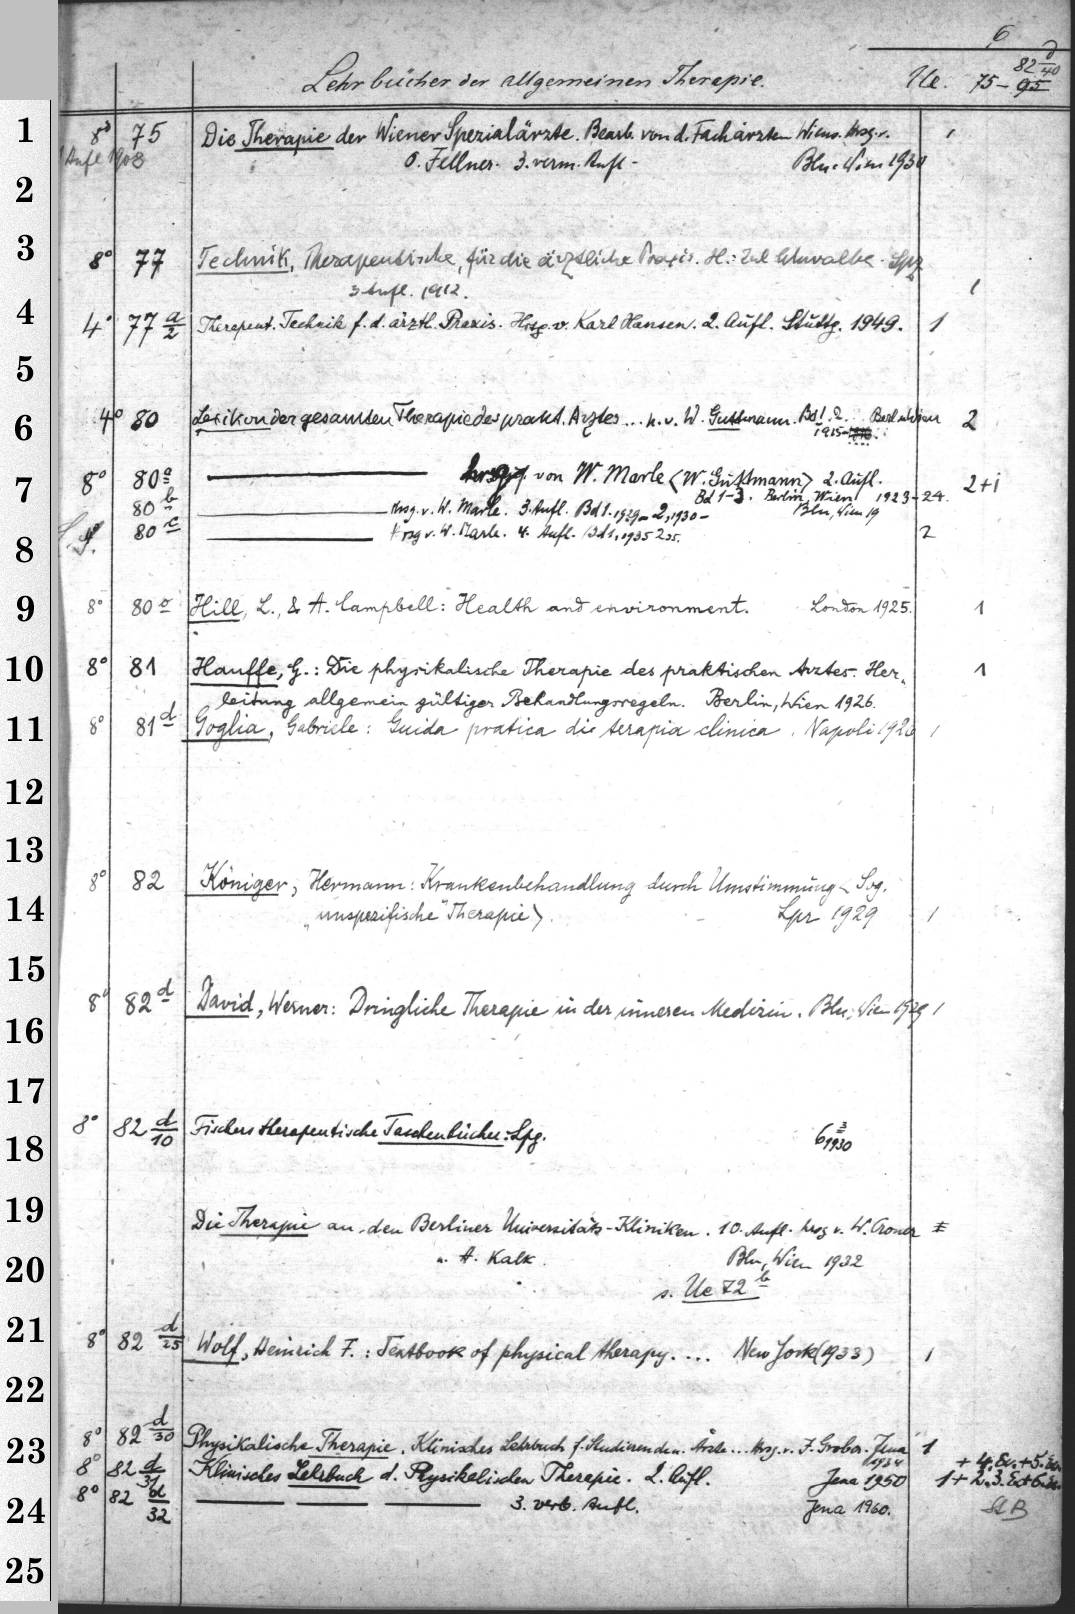 6
Lehrbücher der allgemeinen Therapie. Ue. 75-95 82 d/40
1 8° 75 Die Therapie der Wiener Spezialärzte. Bearb. von d. Fachärzten Wiens. Hrsg. v. 1
Aufl. 1908 O. Fellner. 3. verm. Aufl. Bln: Wien 1930
2
3 8° 77 Technik, Therapeutische, für die ärztliche Praxis. H.: Schwalbe. Lpz
3 Aufl. 1912. 1
4 4° 77 a/2 Therapeut. Technik f. d. ärztl. Praxis. Hrsg. v. Karl Hansen. 2. Aufl. Stuttg. 1949. 1
5
6 4° 80 Lexikon der gesamten Therapie des prakt. Arztes ... h. v. W. Guttmann. Bd 1. 2. Berlin Wien 2
1915-
7 8° 80 a hrsg. von W. Marle <W. Guttmann> 2. Aufl. 2+1
Bd 1-3. Berlin, Wien 1923-24.
80 b Hrsg. v. W. Marle. 3. Aufl. Bd 1. 1929- 2, 1930- Bln, Wien 19
8 80 c Hrsg v. W. Marle. 4. Aufl. Bd 1, 1935 2 35. 2
9 8° 80 e Hill, L., & A. Campbell: Health and environment. London 1925. 1
10 8° 81 Hauffe, G.: Die physikalische Therapie des praktischen Arztes. Her-
leitung allgemein gültiger Behandlungsregeln. Berlin, Wien 1926. 1
11 8° 81 d Goglia, Gabriele: Guida pratica di terapia clinica. Napoli 1926 1
12
13
8° 82 Königer, Hermann: Krankenbehandlung durch Umstimmung < Sog.
14 „unspezifische" Therapie>. Lpz 1929 1
15
8° 82 d David, Werner: Dringliche Therapie in der inneren Medizin. Bln, Wien 1929 1
16
17
18 8° 82 d/10 Fischers therapeutische Taschenbücher: Lpg. 6 3 1930
19 Die Therapie an den Berliner Universitäts-Kliniken. 10. Aufl. hrsg v. W. Croner
20 u. A. Kalk. Bln, Wien 1932
s. Ue 72 b
21 8° 82 d/25 Wolf, Heinrich F.: Textbook of physical therapy. ... New York (1933) 1
22
23 8° 82 d/30 Physikalische Therapie, Klinisches Lehrbuch f. Studierende u. Ärzte ... Hrsg. v. J. Grober. Jena 1934 1
8° 82 d/31 Klinisches Lehrbuch d. Physikalischen Therapie. 2. Aufl. Jena 1950 1+2.3. Ex+6. Ex.
+4. Ex.+5. Ex.
24 8° 82 d/32 3. verb. Aufl. Jena 1960. StB
25